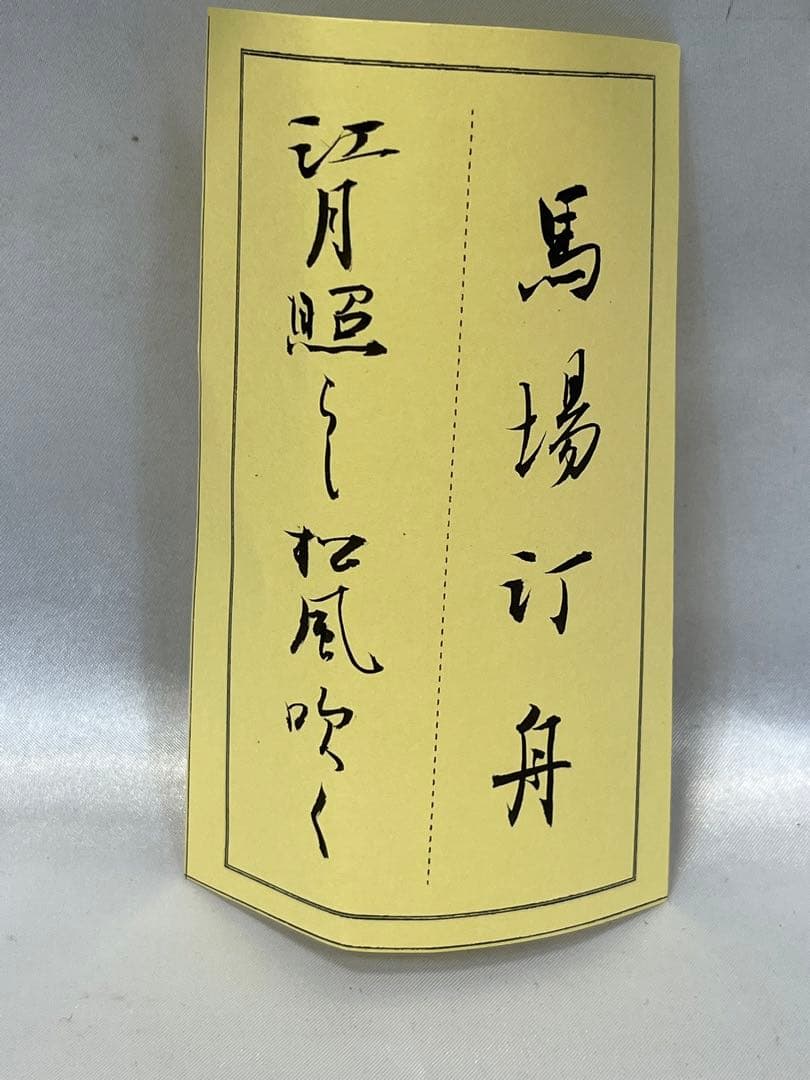 馬場汀舟
江月照らし松風吹く